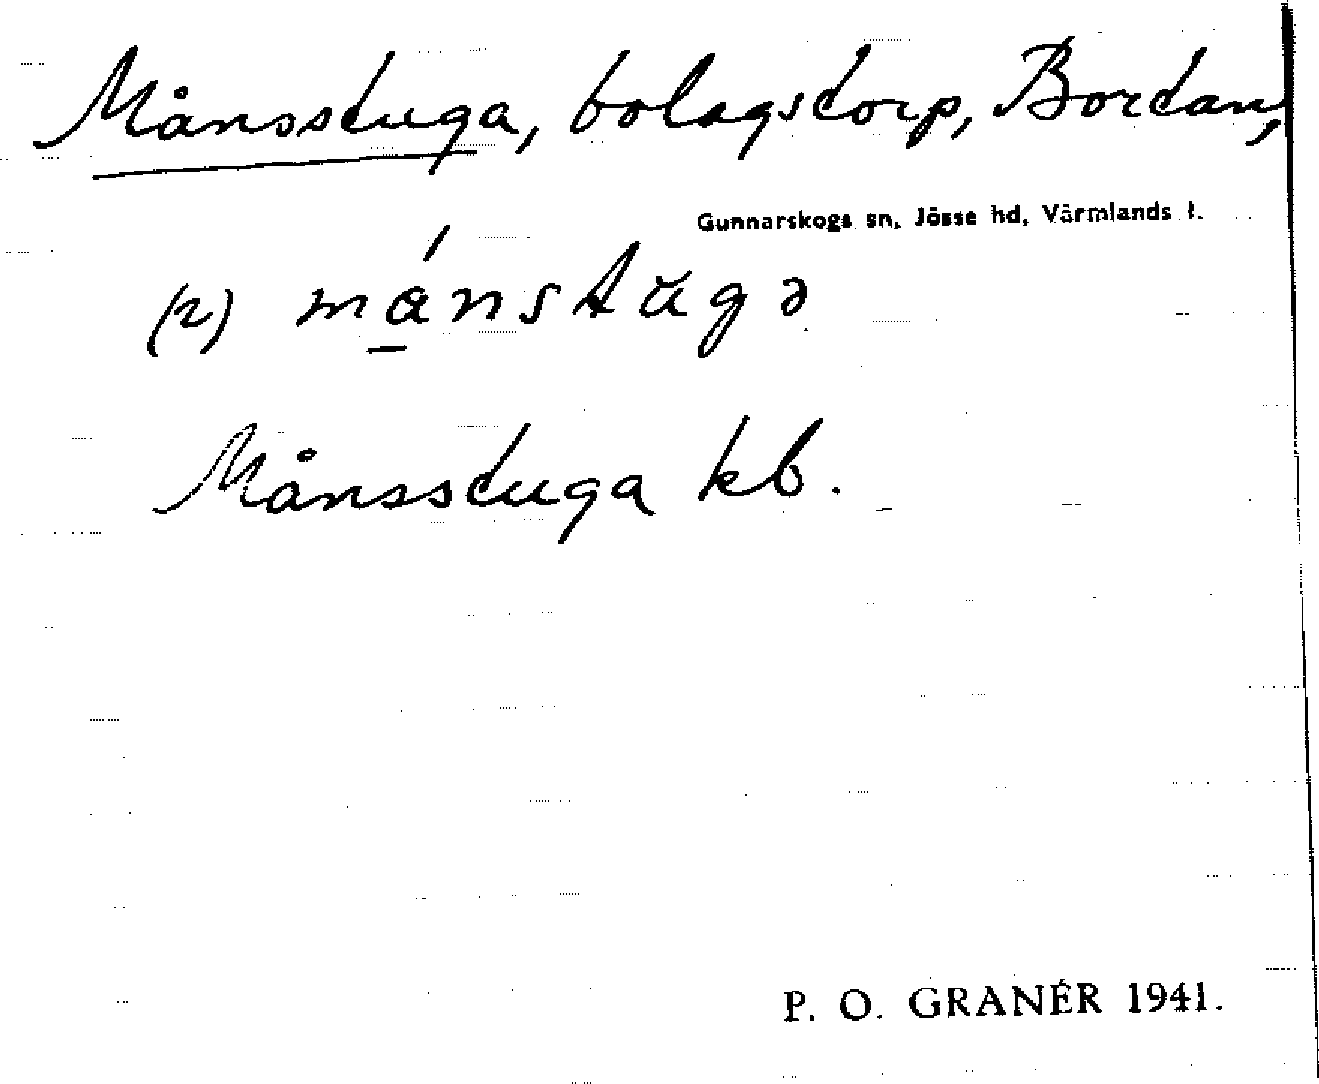 Månsstuga, bolagstorp, Bortan,
Gunnarskogs sn, Jösse hd, Värmlands l.
(2) mǻnstŭgə
Månsstuga kb.
P. O. GRANÉR 1941.